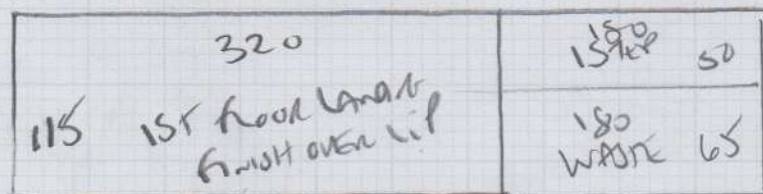 320
115 1ST FLOOR LANDING
FINISH OVER LIP
180
STEP 50
180
WASTE 65